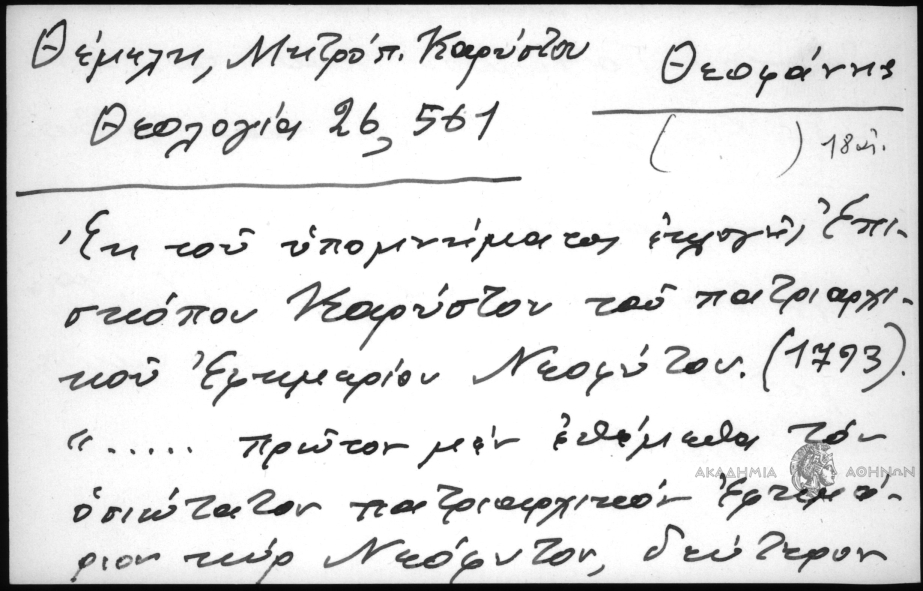 Θέμελη, Μητρόπ. Καρύστου
Θεολογία 26, 561
Θεοφάνης
( ) 18 αἰ.
Ἐκ τοῦ ὑπομνήματος ἐκλογῆς Ἐπι-
σκόπου Καρύστου τοῦ πατριαρχι-
κοῦ Ἐφημερίου Νεοφύτου. (1793).
"..... πρῶτον μὲν ἐθέμεθα τόν
ὁσιώτατον πατριαρχικόν Ἐφημέ-
ριον κύρ Νεόφυτον, δεύτερον
ΑΚΑΔΗΜΙΑ ΑΘΗΝΩΝ